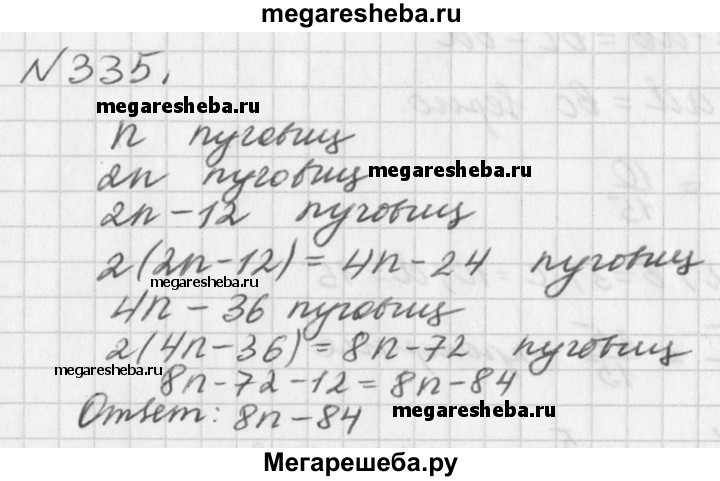 megaresheba.ru
№335.
megaresheba.ru
n пуговиц
2n пуговиц megaresheba.ru
2n - 12 пуговиц
2(2n-12) = 4n-24 пуговиц
megaresheba.ru
4n - 36 пуговиц
2(4n-36) = 8n-72 пуговиц
megaresheba.ru
8n-72-12 = 8n-84
Ответ: 8n-84 megaresheba.ru
Мегарешеба.ру